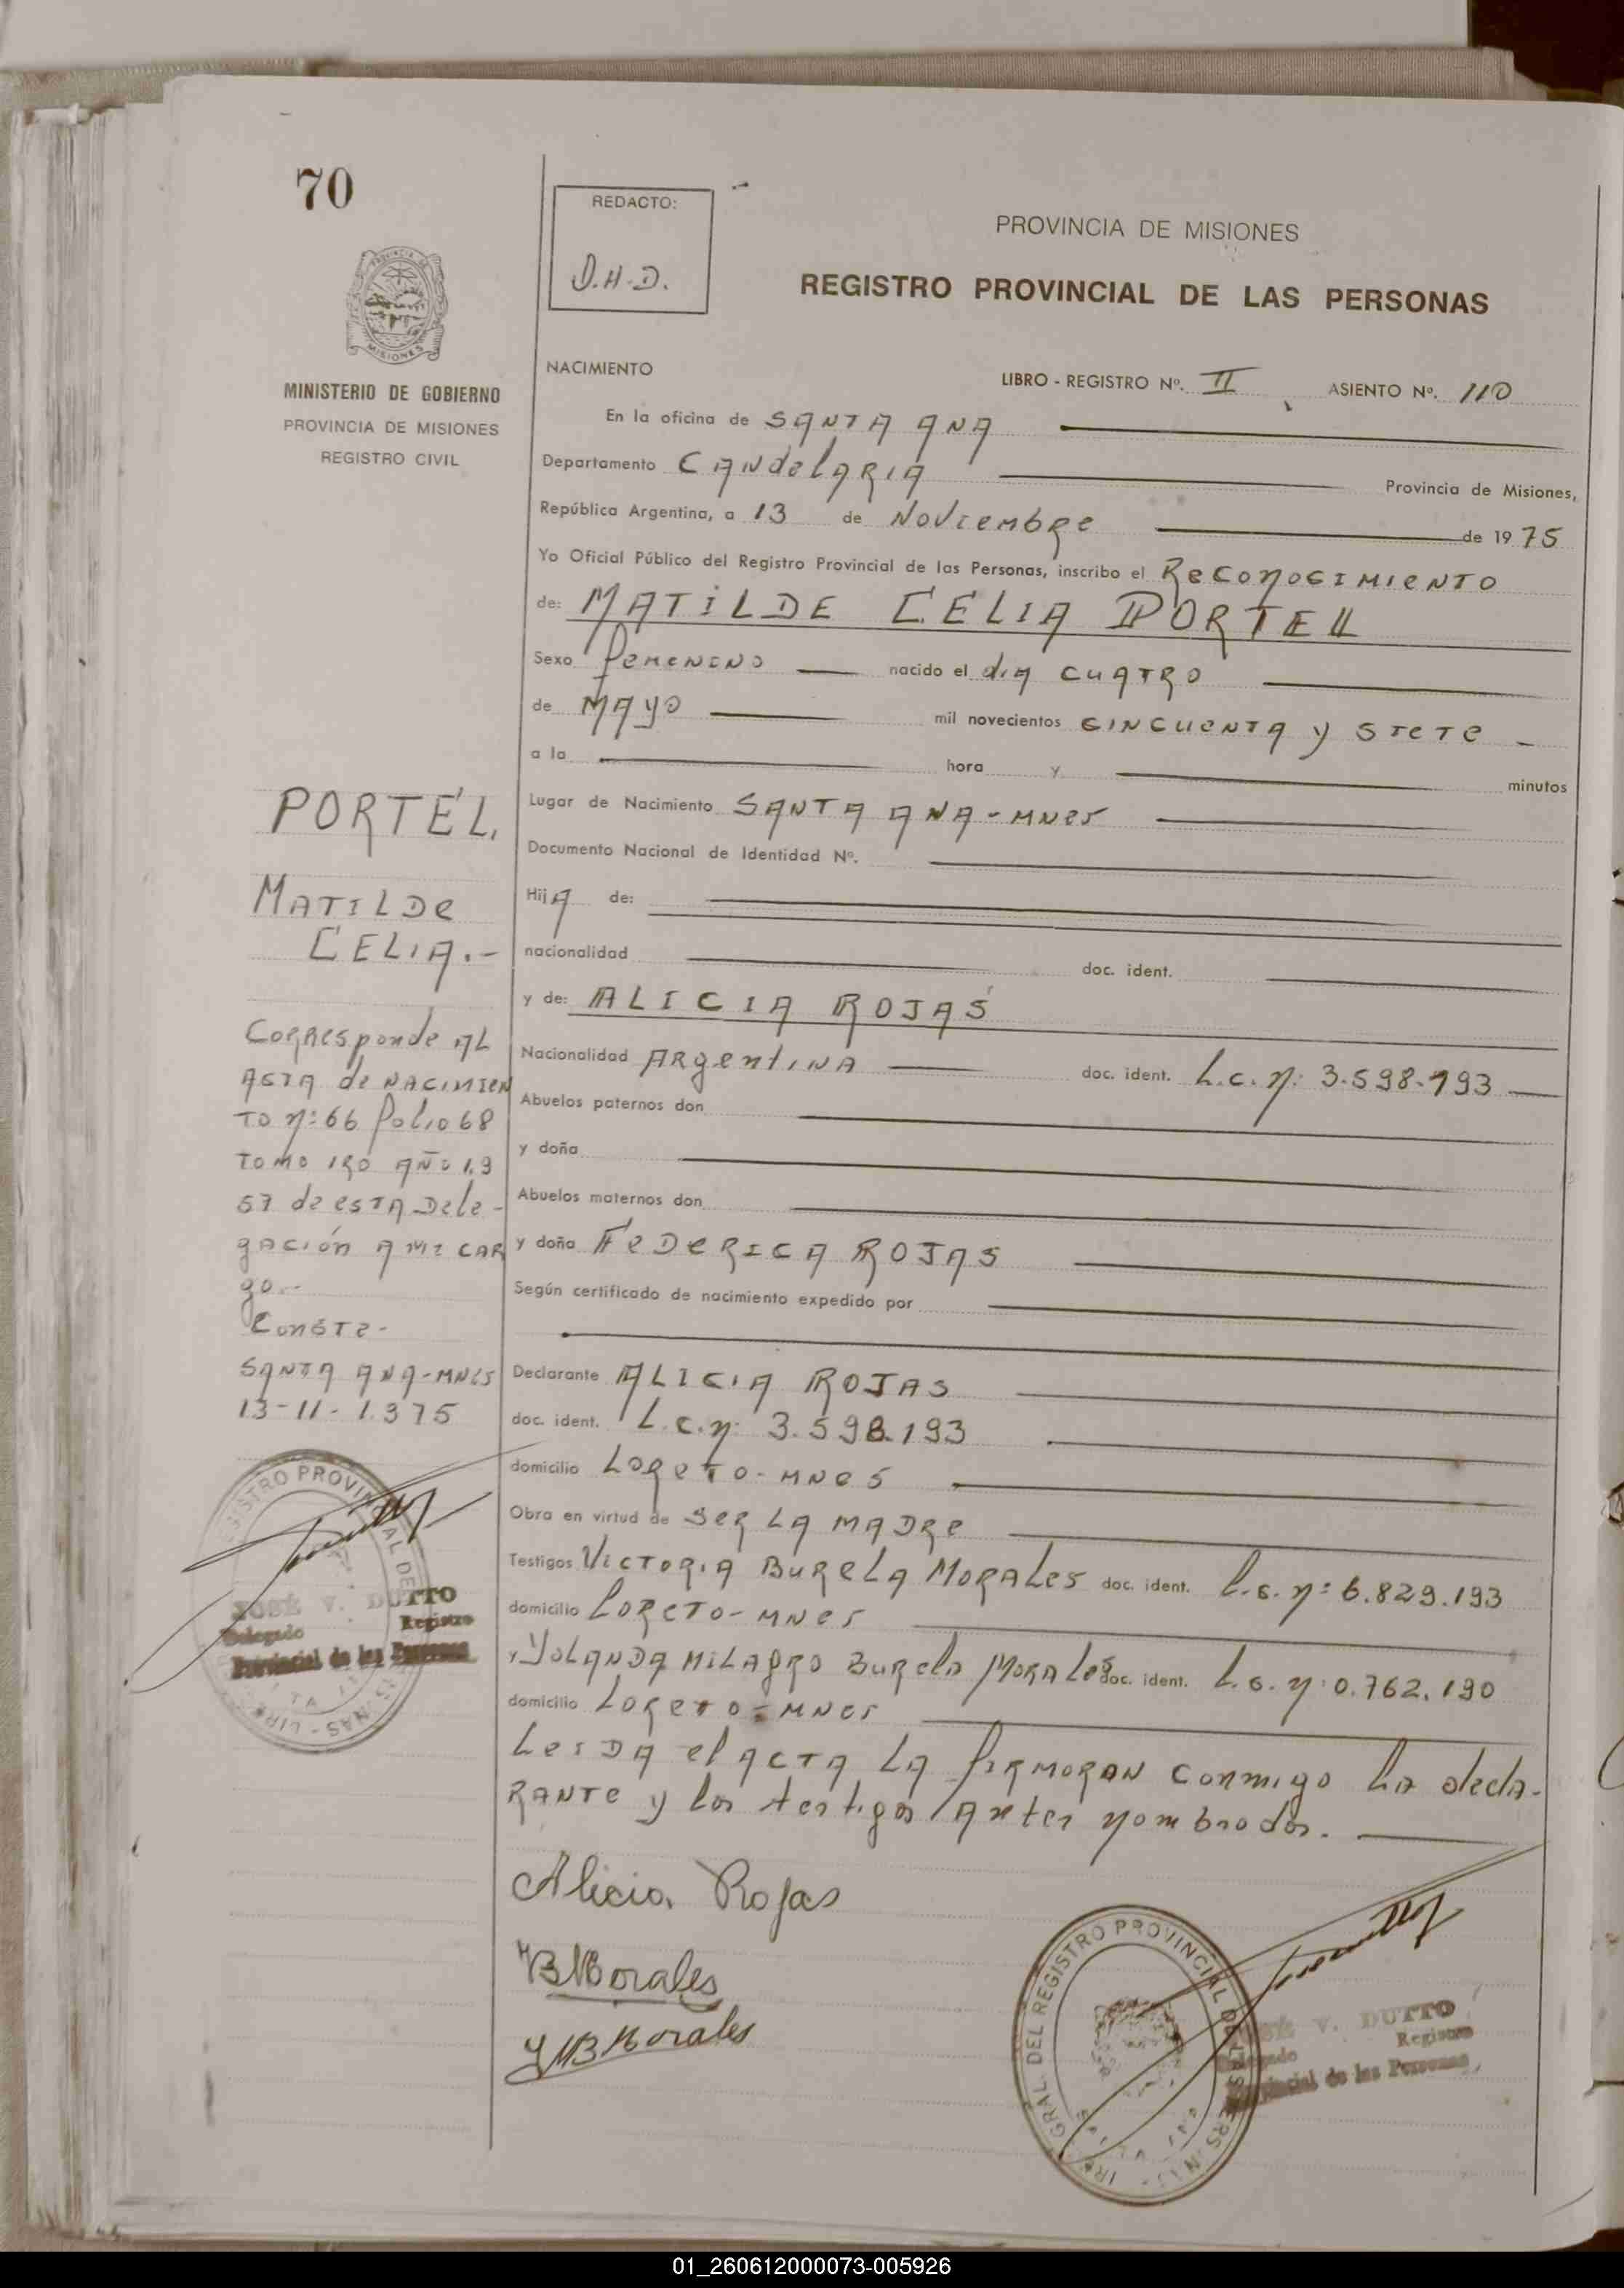 70
REDACTO:
D.H.D.
PROVINCIA DE MISIONES
REGISTRO PROVINCIAL DE LAS PERSONAS
MINISTERIO DE GOBIERNO
PROVINCIA DE MISIONES
REGISTRO CIVIL
NACIMIENTO
LIBRO - REGISTRO Nº. II ASIENTO Nº. 110
En la oficina de SANTA ANA
Departamento CANdelARIA Provincia de Misiones,
República Argentina, a 13 de Noviembre de 1975
Yo Oficial Público del Registro Provincial de las Personas, inscribo el ReCONOCIMIeNTO
de: MATILDE CELIA PORTELL
Sexo femenino nacido el día CUATRO
de MAYO mil novecientos CINCUENTA y SIETE
a la hora y minutos
Lugar de Nacimiento SANTA ANA - MNES
Documento Nacional de Identidad Nº.
HijA de:
nacionalidad doc. ident.
y de: ALICIA ROJAS
Nacionalidad ARgentINA doc. ident. L.c. n: 3.598.193
Abuelos paternos don
y doña
Abuelos maternos don
y doña FeDeRICA ROJAS
Según certificado de nacimiento expedido por
Declarante ALICIA ROJAS
doc. ident. L.c.n: 3.598.193
domicilio LOReTO - MNES
Obra en virtud de SeR LA MADRe
Testigos VICTORIA BUReLA MORALes doc. ident. L.c. n: 6.829.193
domicilio LOReTO - MNES
y YOLANDA MILAGRO BUReLA MORALes doc. ident. L.c. n: 0.762.190
domicilio LOReTO - MNES
LeIDA el ACTA LA fIRMORAN conmigo La decla-
RANTe y los testigos Antes nombrados.
Alicia Rojas
VBMorales
YMBMorales
PORTEL,
MATILDe
CELIA.-
CORRespoNde AL
ACTA de NACIMIEN
TO n: 66 folio 68
TOMO 1RO AÑO 1.9
57 de esTA Dele-
gación A MI CAR
go.-
ConsTe-
SANTA ANA - MNES
13-11-1.975
JOSÉ V. DUTTO
Delegado Registro
Provincial de las Personas
GRAL. DEL REGISTRO PROVINCIAL DE
JOSÉ V. DUTTO
Delegado Registro
Provincial de las Personas
01_260612000073-005926